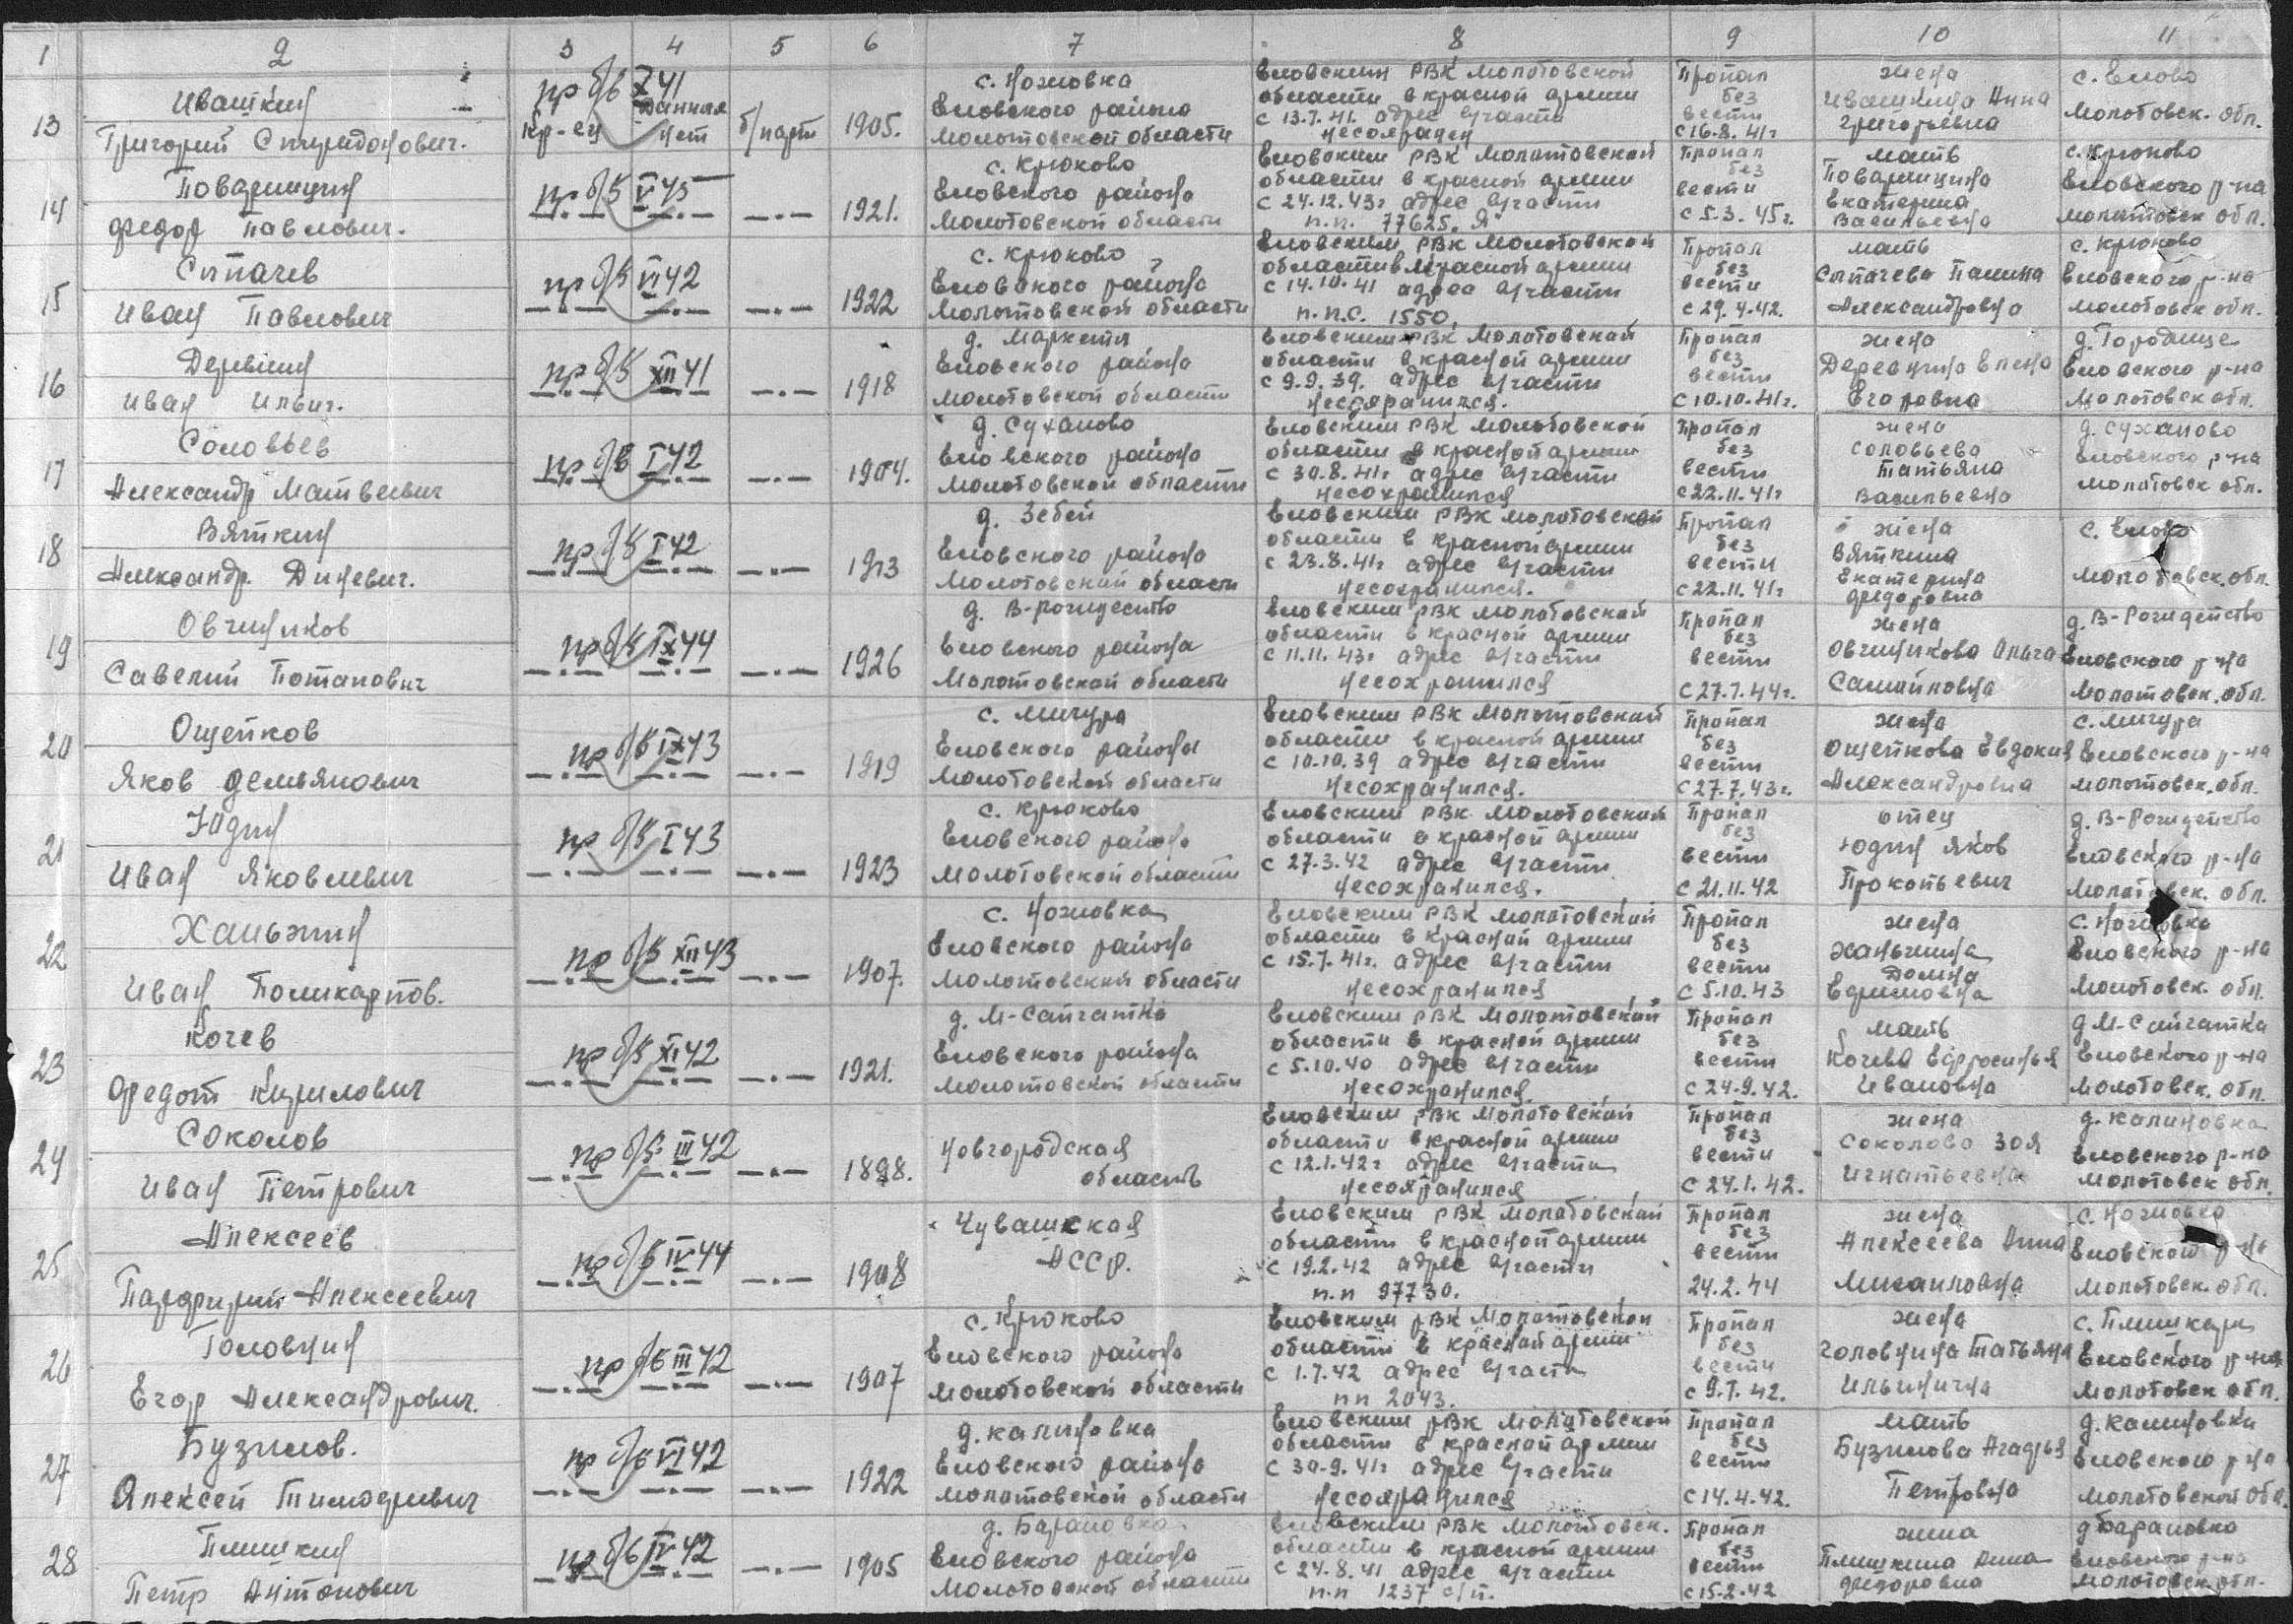 1 2 3 4 5 6 7 8 9 10 11
13
Ивашкин
Григорий Спиридонович.
пр б/в X 41
Кр-ец
данных
нет
б/парт
1905.
с. Ножовка
Еловского района
Молотовской области
Еловским РВК Молотовской
области в красной армии
с 13.7.41. адрес части
несохранен
Пропал
без
вести
с 16.8.41г
жена
Ивашкина Анна
Григорьевна
с. Елово
Молотовск. обл.
14
Поварницин
Федор Павлович.
пр б/в V 45
—.— —.— —.—
1921.
с. Крюково
Еловского района
Молотовской области
Еловским РВК Молотовской
области в красной армии
с 24.12.43г адрес части
п.п. 77625. Я
Пропал
без
вести
с 5.3.45г.
мать
Поварницина
Екатерина
Васильевна
с. Крюково
Еловского р-на
Молотовск обл.
15
Сыпачев
Иван Павлович
пр б/в VI 42
—.— —.— —.—
1922
с. Крюково
Еловского района
Молотовской области
Еловским РВК Молотовской
области в красной армии
с 14.10.41 адрес части
п.п.с. 1550.
Пропал
без
вести
с 29.4.42.
мать
Сыпачева Палина
Александровна
с. Крюково
Еловского р-на
Молотовск обл.
16
Дервнин
Иван Ильич.
пр б/в XII 41
—.— —.— —.—
1918
д. Маркеты
Еловского района
Молотовской области
Еловским РВК Молотовской
области в красной армии
с 9.9.39. адрес части
несохранился.
Пропал
без
вести
с 10.10.41г.
жена
Деревнина Елена
Егоровна
д. Городище
Еловского р-на
Молотовск обл.
17
Соловьев
Александр Матвеевич
пр б/в I 42
—.— —.— —.—
1904.
д. Суханово
Еловского района
Молотовской области
Еловским РВК Молотовской
области в красной армии
с 30.8.41г адрес части
несохранился
Пропал
без
вести
с 22.11.41г
жена
Соловьева
Татьяна
Васильевна
д. Суханово
Еловского р-на
Молотовск обл.
18
Вяткин
Александр Диневич.
пр б/в I 42
—.— —.— —.—
1913
д. Зебей
Еловского района
Молотовской области
Еловским РВК Молотовской
области в красной армии
с 23.8.41г адрес части
несохранился.
Пропал
без
вести
с 22.11.41г
жена
Вяткина
Екатерина
Федоровна
с. Елово
Молотовск. обл.
19
Овчинников
Савелий Потапович
пр б/в IX 44
—.— —.— —.—
1926
д. В-рождество
Еловского района
Молотовской области
Еловским РВК Молотовской
области в красной армии
с 11.11.43г адрес части
несохранился
Пропал
без
вести
с 27.7.44г.
жена
Овчинникова Ольга
Самойновна
д. В-Рождейство
Еловского р-на
Молотовск. обл.
20
Ощепков
Яков Демьянович
пр б/в IX 43
—.— —.— —.—
1919
с. Мичура
Еловского района
Молотовской области
Еловским РВК Молотовской
области в красной армии
с 10.10.39 адрес части
несохранился.
Пропал
без
вести
с 27.7.43г.
жена
Ощепкова Евдокия
Александровна
с. Мичура
Еловского р-на
Молотовск. обл.
21
Юдин
Иван Яковлевич
пр б/в I 43
—.— —.— —.—
1923
с. Крюково
Еловского района
Молотовской области
Еловским РВК Молотовской
области в красной армии
с 27.3.42 адрес части
несохранился.
Пропал
без
вести
с 21.11.42
отец
Юдин Яков
Прокопьевич
д. В-Рождейство
Еловского р-на
Молотовск. обл.
22
Ханьжин
Иван Поликарпов.
пр б/в XII 43
—.— —.— —.—
1907.
с. Ножовка
Еловского района
Молотовской области
Еловским РВК Молотовской
области в красной армии
с 15.7.41г. адрес части
несохранился
Пропал
без
вести
с 5.10.43
жена
Ханьжина
Домна
Ефимовна
с. Ножовка
Еловского р-на
Молотовск. обл.
23
Кочев
Федот Кирилович
пр б/в XI 42
—.— —.— —.—
1921.
д. М-Сайгатка
Еловского района
Молотовской области
Еловским РВК Молотовской
области в красной армии
с 5.10.40 адрес части
несохранился.
Пропал
без
вести
с 24.9.42.
мать
Кочева Ефросинья
Ивановна
д М-Сайгатка
Еловского р-на
Молотовск. обл.
24
Соколов
Иван Петрович
пр б/в III 42
—.— —.— —.—
1898.
Новгородская
область
Еловским РВК Молотовской
области в красной армии
с 12.1.42г адрес части
несохранился
Пропал
без
вести
с 24.1.42.
жена
Соколова Зоя
Игнатьевна
д. Калиновка
Еловского р-на
Молотовск обл.
25
Алексеев
Парфирий Алексеевич
пр б/в IV 44
—.— —.— —.—
1908
Чувашская
АССР.
Еловским РВК Молотовской
области в красной армии
с 19.2.42 адрес части
п.п 97730.
Пропал
без
вести
24.2.44
жена
Алексеева Анна
Михаиловна
с. Ножовка
Еловского р-на
Молотовск. обл.
26
Головнин
Егор Александрович.
пр б/в III 42
—.— —.— —.—
1907
с. Крюково
Еловского района
Молотовской области
Еловским РВК Молотовской
области в красной армии
с 1.7.42 адрес части
пп 2043.
Пропал
без
вести
с 9.7.42.
жена
Головнина Татьяна
Ильинична
с. Плишкари
Еловского р-на
Молотовск обл.
27
Бузмов.
Алексей Тимофеевич
пр б/в VI 42
—.— —.— —.—
1922
д. Калиновка
Еловского района
Молотовской области
Еловским РВК Молотовской
области в красной армии
с 30.9.41г адрес части
несохранился
Пропал
без
вести
с 14.4.42.
мать
Бузмова Агафья
Петровна
д. Калиновка
Еловского р-на
Молотовской обл.
28
Плишкин
Петр Антонович
пр б/в IV 42
—.— —.— —.—
1905
д. Барановка
Еловского района
Молотовской области
Еловским РВК Молотовск.
области в красной армии
с 24.8.41 адрес части
п.п 1237 с/п.
Пропал
без
вести
с 15.2.42
жена
Плишкина Анна
Федоровна
д Барановка
Еловского р-на
Молотовск обл.